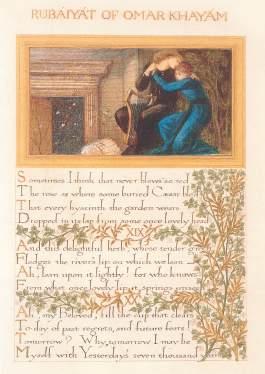 RUBÁIYÁT OF OMAR KHAYÁM
Sometimes I think that never blows so red
The rose as where some buried Cæsar bled
That every hyacinth the garden wears
Dropped in its lap from some once lovely head
XIX
And this delightful herb whose tender green
Fledges the river's lip on which we lean
Ah! lean upon it lightly! for who knows
From what once lovely lip it springs unseen
XX
Ah, my Belovéd, fill the cup that clears
To-day of past regrets, and future fears
Tomorrow? Why, tomorrow I may be
Myself with Yesterday's seven thousand years